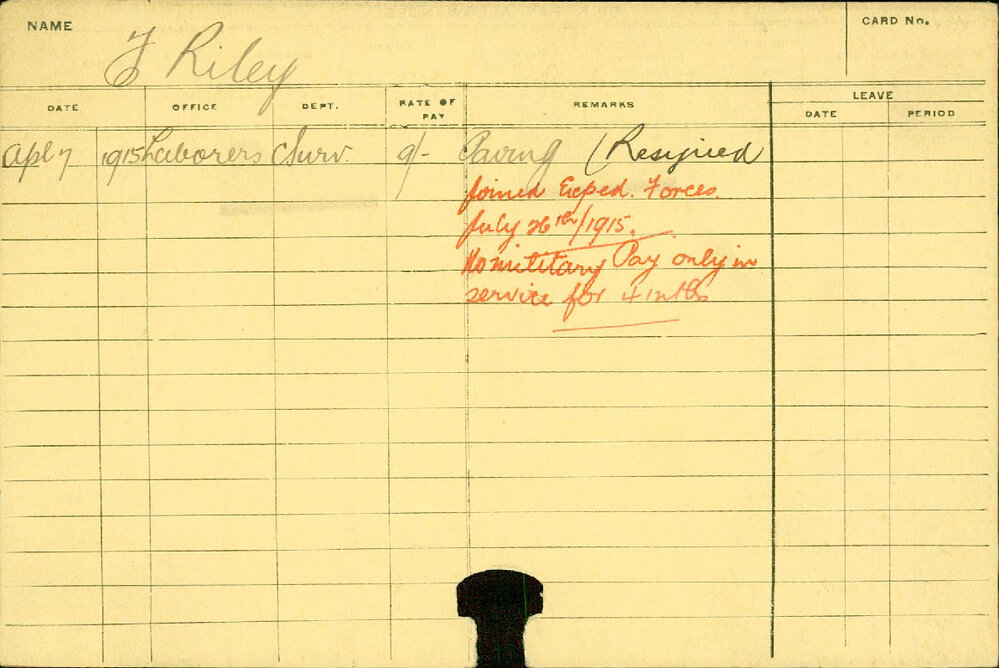 NAME
F Riley
CARD No.
DATE OFFICE DEPT. RATE OF PAY REMARKS LEAVE
DATE PERIOD
Apl 7 1915 Laborers C Surv. 9/- Paving (Resigned
Joined Exped. Forces.
July 26th/1915.
No military Pay only in
service for 4 mths